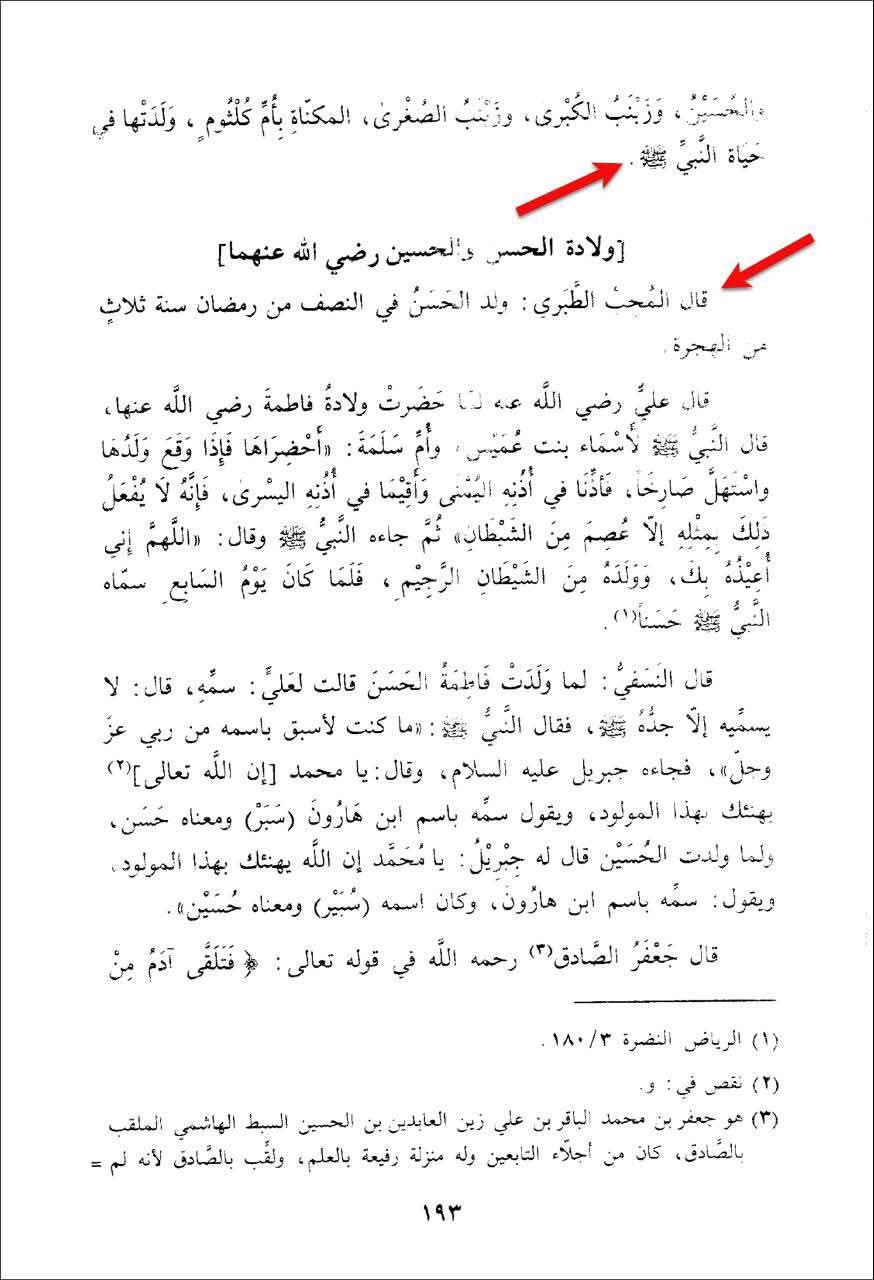 والحُسَيْنُ، وَزَيْنَبُ الكُبْرى، وزَيْنَبُ الصُغْرىٰ، المكنّاةِ بِأُمِّ كُلْثُومٍ، وَلَدَتْها في
حَيَاة النَّبيِّ ﷺ.
[ولادة الحسن والحسين رضي الله عنهما]
قال المُحِبُّ الطَّبَري: ولد الحَسَنُ في النصف من رمضان سنة ثلاثٍ
من الهجرة.
قال عليٌّ رضي اللَّه عنه لمّا حَضَرتْ ولادةُ فاطمةَ رضي اللَّه عنها،
قال النَّبيُّ ﷺ لأَسْمَاء بنت عُمَيْسٍ، وأُمِّ سَلَمَةَ: «أَحْضِرَاهَا فَإِذَا وَقَعَ وَلَدُهَا
واسْتَهَلَّ صَارِخَاً، فَأذِّنَا في أُذُنِهِ اليُمْنَى وَأَقِيْمَا في أُذُنِهِ اليسْرىٰ، فَإِنَّهُ لَا يُفْعَلُ
ذَلِكَ بِمِثْلِهِ إلّا عُصِمَ مِنَ الشَيْطَانِ» ثُمَّ جاءه النَّبيُّ ﷺ وقال: «اللَّهمَّ إني
أُعِيْذُهُ بِكَ، وَوَلَدَهُ مِنَ الشَيْطَانِ الرَّجِيْمِ، فَلَمَا كَانَ يَوْمُ السَابِعِ سمّاه
النَّبيُّ ﷺ حَسَناً(١).
قال النَسَفيُّ: لما وَلَدَتْ فَاطِمَةُ الحَسَنَ قالت لعَليٍّ: سمِّهِ، قال: لا
يسمِّيه إلّا جدُّهُ ﷺ، فقال النَّبيُّ ﷺ: «ما كنت لأسبق باسمه من ربي عزّ
وجلّ»، فجاءه جبريل عليه السلام، وقال: يا محمد [إن اللَّه تعالى](٢)
يهنئك بهذا المولود، ويقول سمِّه باسم ابن هَارُونَ (سَبَرْ) ومعناه حَسَن،
ولما ولدت الحُسَيْن قال له جِبْرِيْلُ: يا مُحَمَّد إن اللَّه يهنئك بهذا المولود،
ويقول: سمِّه باسم ابن هارُونَ، وكان اسمه (سُبَيْر) ومعناه حُسَيْن».
قال جَعْفَرُ الصَّادق(٣) رحمه اللَّه في قوله تعالى: ﴿فَتَلَقَّى آدَمُ مِنْ
(١) الرياض النضرة ١٨٠/٣.
(٢) نقص في: و.
(٣) هو جعفر بن محمد الباقر بن علي زين العابدين بن الحسين السبط الهاشمي الملقب
بالصَّادق، كان من أجلّاء التابعين وله منزلة رفيعة بالعلم، ولقِّب بالصَّادق لأنه لم =
١٩٣